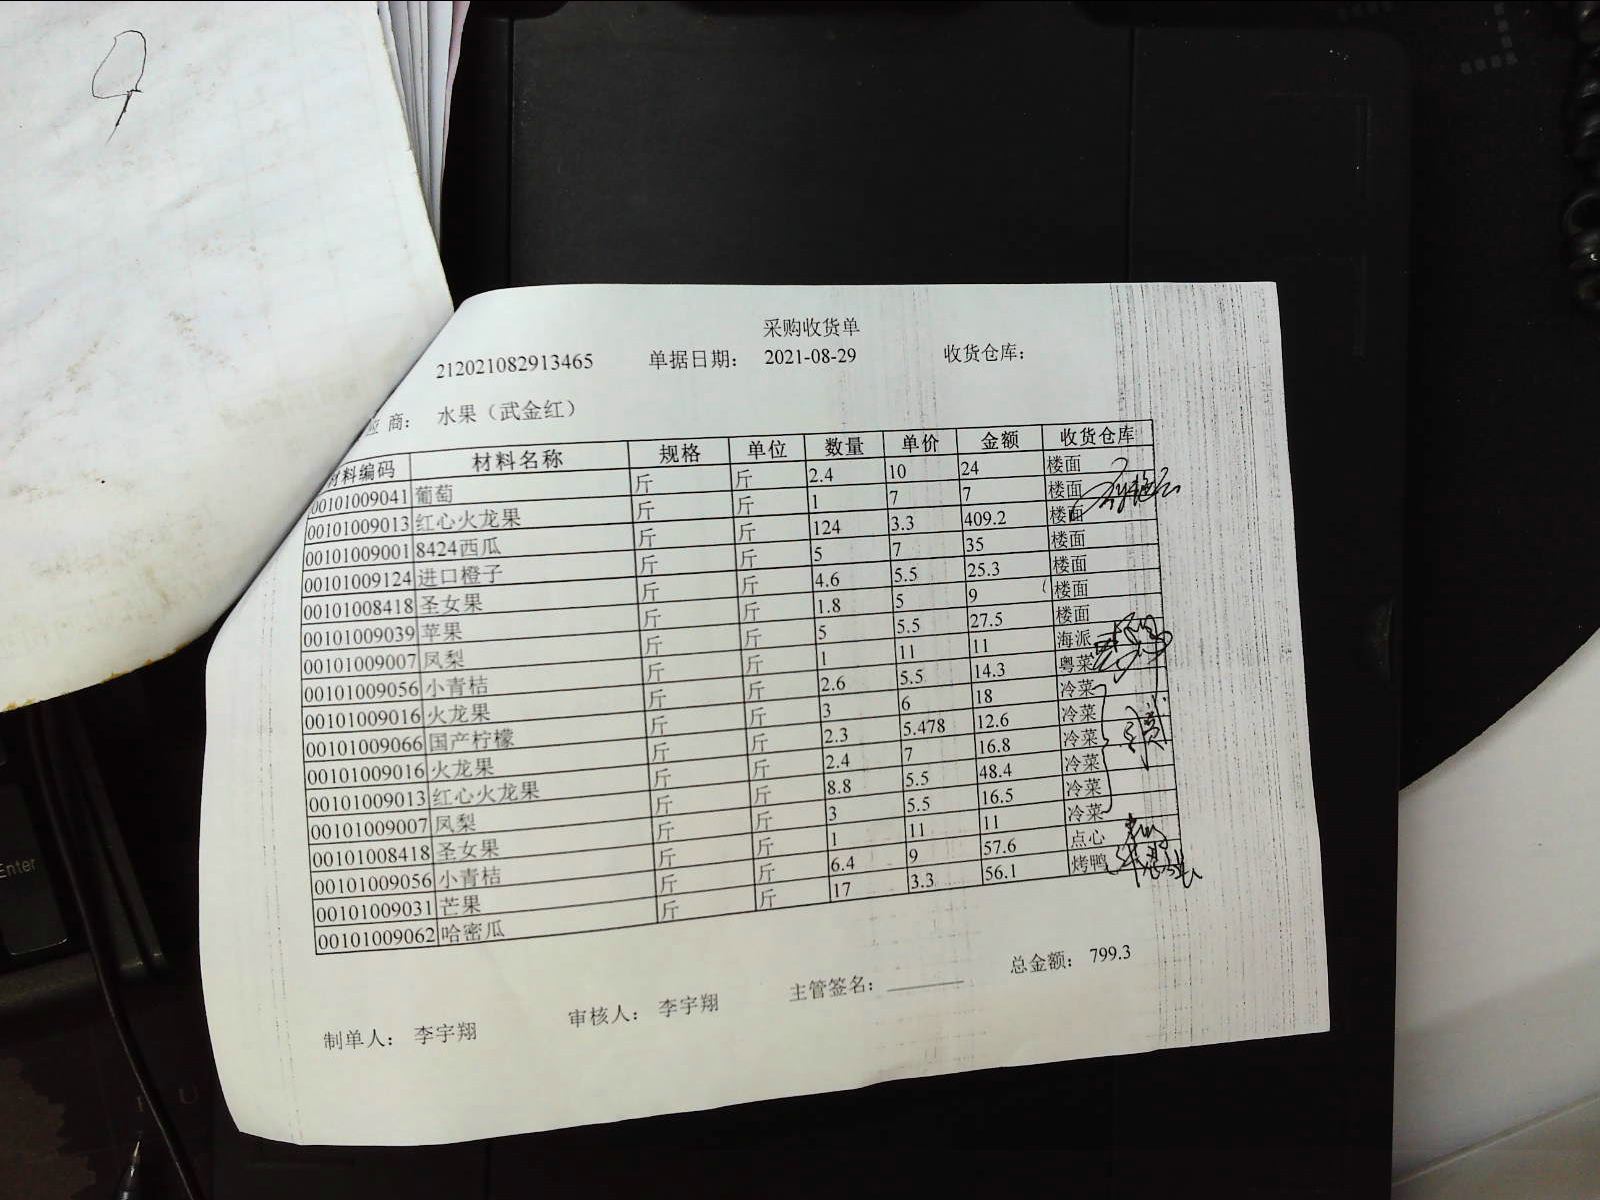 采购收货单
212021082913465 单据日期: 2021-08-29 收货仓库:
应 商: 水果（武金红）
材料编码 材料名称 规格 单位 数量 单价 金额 收货仓库
00101009041 葡萄 斤 斤 2.4 10 24 楼面
00101009013 红心火龙果 斤 斤 1 7 7 楼面
00101009001 8424西瓜 斤 斤 124 3.3 409.2 楼面
00101009124 进口橙子 斤 斤 5 7 35 楼面
00101008418 圣女果 斤 斤 4.6 5.5 25.3 楼面
00101009039 苹果 斤 斤 1.8 5 9 楼面
00101009007 凤梨 斤 斤 5 5.5 27.5 楼面
00101009056 小青桔 斤 斤 1 11 11 海派
00101009016 火龙果 斤 斤 2.6 5.5 14.3 粤菜
00101009066 国产柠檬 斤 斤 3 6 18 冷菜
00101009016 火龙果 斤 斤 2.3 5.478 12.6 冷菜
00101009013 红心火龙果 斤 斤 2.4 7 16.8 冷菜
00101009007 凤梨 斤 斤 8.8 5.5 48.4 冷菜
00101008418 圣女果 斤 斤 3 5.5 16.5 冷菜
00101009056 小青桔 斤 斤 1 11 11 冷菜
00101009031 芒果 斤 斤 6.4 9 57.6 点心
00101009062 哈密瓜 斤 斤 17 3.3 56.1 烤鸭
总金额: 799.3
制单人: 李宇翔 审核人: 李宇翔 主管签名:
Enter